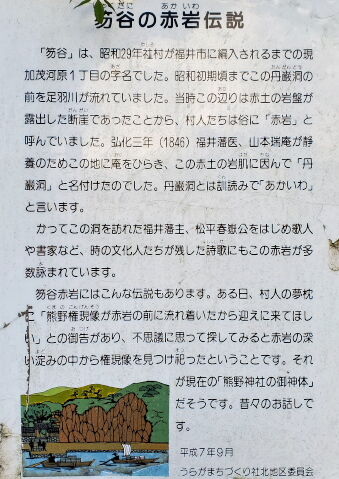 笏谷の赤岩伝説
「笏谷」は、昭和29年社村が福井市に編入されるまでの現
加茂河原1丁目の字名でした。昭和初期頃までこの丹巌洞の
前を足羽川が流れていました。当時この辺りは赤土の岩盤が
露出した断崖であったことから、村人たちは俗に「赤岩」と
呼んでいました。弘化三年（1846）福井藩医、山本瑞庵が静
養のためこの地に庵をひらき、この赤土の岩肌に因んで「丹
巌洞」と名付けたのでした。丹巌洞とは訓読みで「あかいわ」
と言います。
かつてこの洞を訪れた福井藩主、松平春嶽公をはじめ歌人
や書家など、時の文化人たちが残した詩歌にもこの赤岩が多
数詠まれています。
笏谷赤岩にはこんな伝説もあります。ある日、村人の夢枕
に「熊野権現像が赤岩の前に流れ着いたから迎えに来てほし
い」との御告があり、不思議に思って探してみると赤岩の深
い淀みの中から権現像を見つけ祀ったということです。それ
が現在の「熊野神社の御神体」
だそうです。昔々のお話しで
す。
平成7年9月
うらがまちづくり社北地区委員会